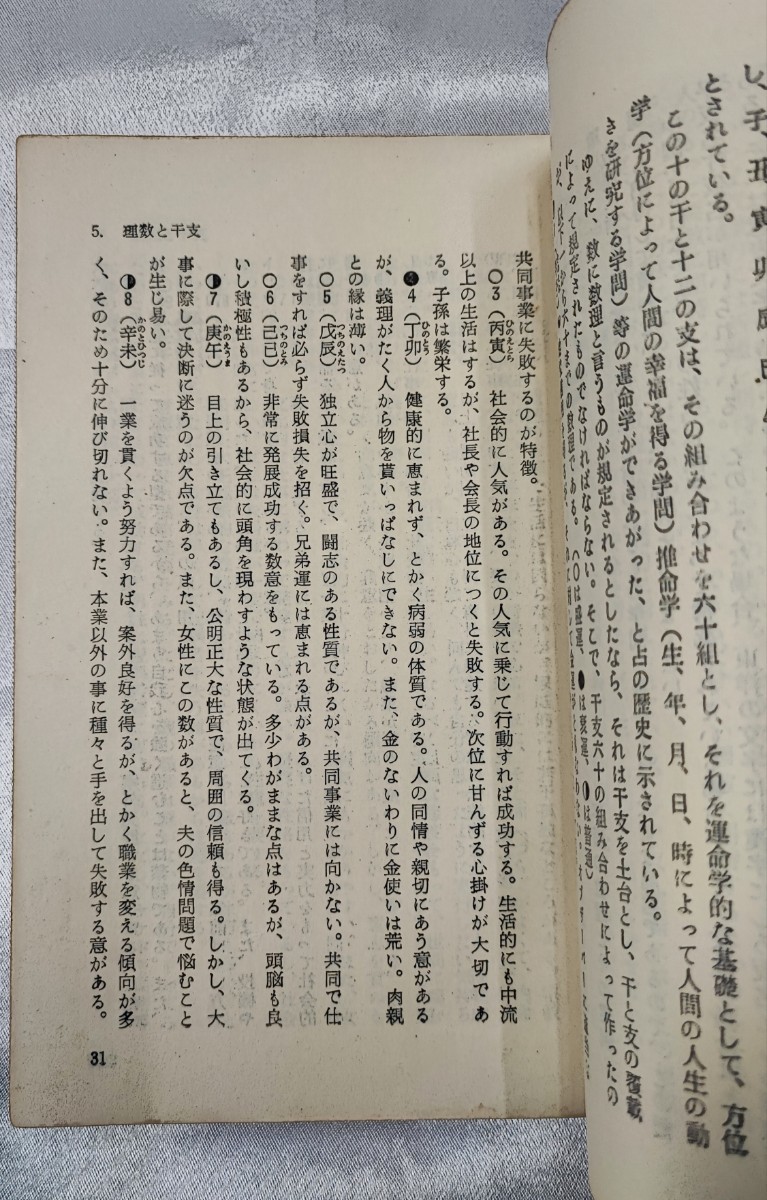 とされている。
この十の干と十二の支は、その組み合わせを六十組とし、それを運命学的な基礎として、方位
学(方位によって人間の幸福を得る学問)推命学(生、年、月、日、時によって人間の人生の動
きを研究する学問)等の運命学ができあがった、と占の歴史に示されている。
ゆえに、数に数理と言うものが規定されるとしたなら、それは干支を土台とし、干と支の
によって規定されたものでなければならない。そこで、干支六十の組み合わせによって作ったの
5. 理数と干支
共同事業に失敗するのが特徴。
○3(丙寅ひのえとら) 社会的に人気がある。その人気に乗じて行動すれば成功する。生活的にも中流
以上の生活はするが、社長や会長の地位につくと失敗する。次位に甘んずる心掛けが大切であ
る。子孫は繁栄する。
●4(丁卯ひのとう) 健康的に恵まれず、とかく病弱の体質である。人の同情や親切にあう意がある
が、義理がたく人から物を貰いっぱなしにできない。また、金のないわりに金使いは荒い。肉親
との縁は薄い。
○5(戊辰つちのえたつ) 独立心が旺盛で、闘志のある性質であるが、共同事業には向かない。共同で仕
事をすれば必らず失敗損失を招く。兄弟運には恵まれる点がある。
○6(己巳つちのとみ) 非常に発展成功する数意をもっている。多少わがままな点はあるが、頭脳も良
いし積極性もあるから、社会的に頭角を現わすような状態が出てくる。
◑7(庚午かのえうま) 目上の引き立てもあるし、公明正大な性質で、周囲の信頼も得る。しかし、大
事に際して決断に迷うのが欠点である。また、女性にこの数があると、夫の色情問題で悩むこと
が生じ易い。
◑8(辛未かのとひつじ) 一業を貫くよう努力すれば、案外良好を得るが、とかく職業を変える傾向が多
く、そのため十分に伸び切れない。また、本業以外の事に種々と手を出して失敗する意がある。
31